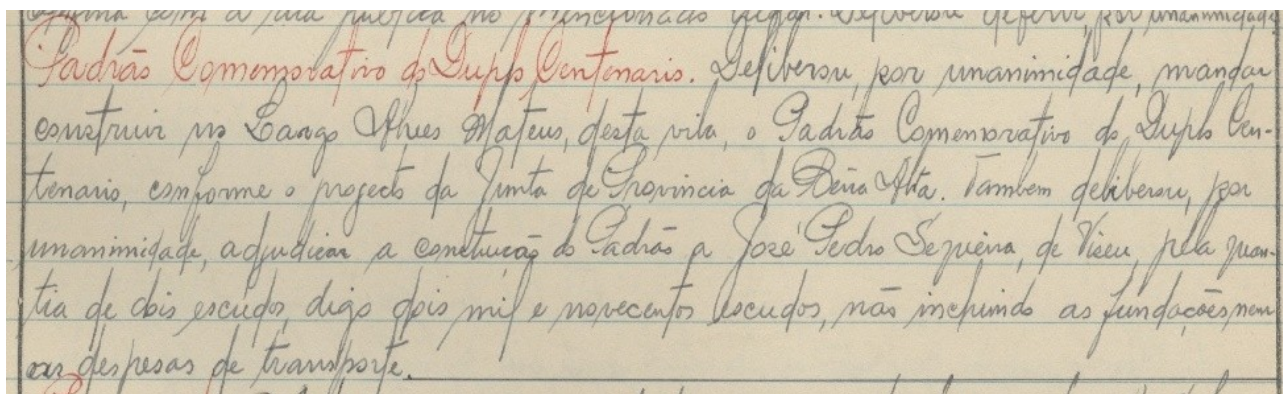 com a via pública no mencionado lugar. Deliberou deferir, por unanimidade
Padrão Comemorativo do Duplo Centenario. Deliberou, por unanimidade, mandar
construir no Largo Alves Mateus, desta vila, o Padrão Comemorativo do Duplo Cen-
tenario, conforme o projecto da Junta de Provincia da Beira Alta. Tambem deliberou, por
unanimidade, adjudicar a construção do Padrão a José Pedro Sequeira, de Viseu, pela quan-
tia de dois escudos, digo dois mil e novecentos escudos, não incluindo as fundações nem
as despesas de transporte.